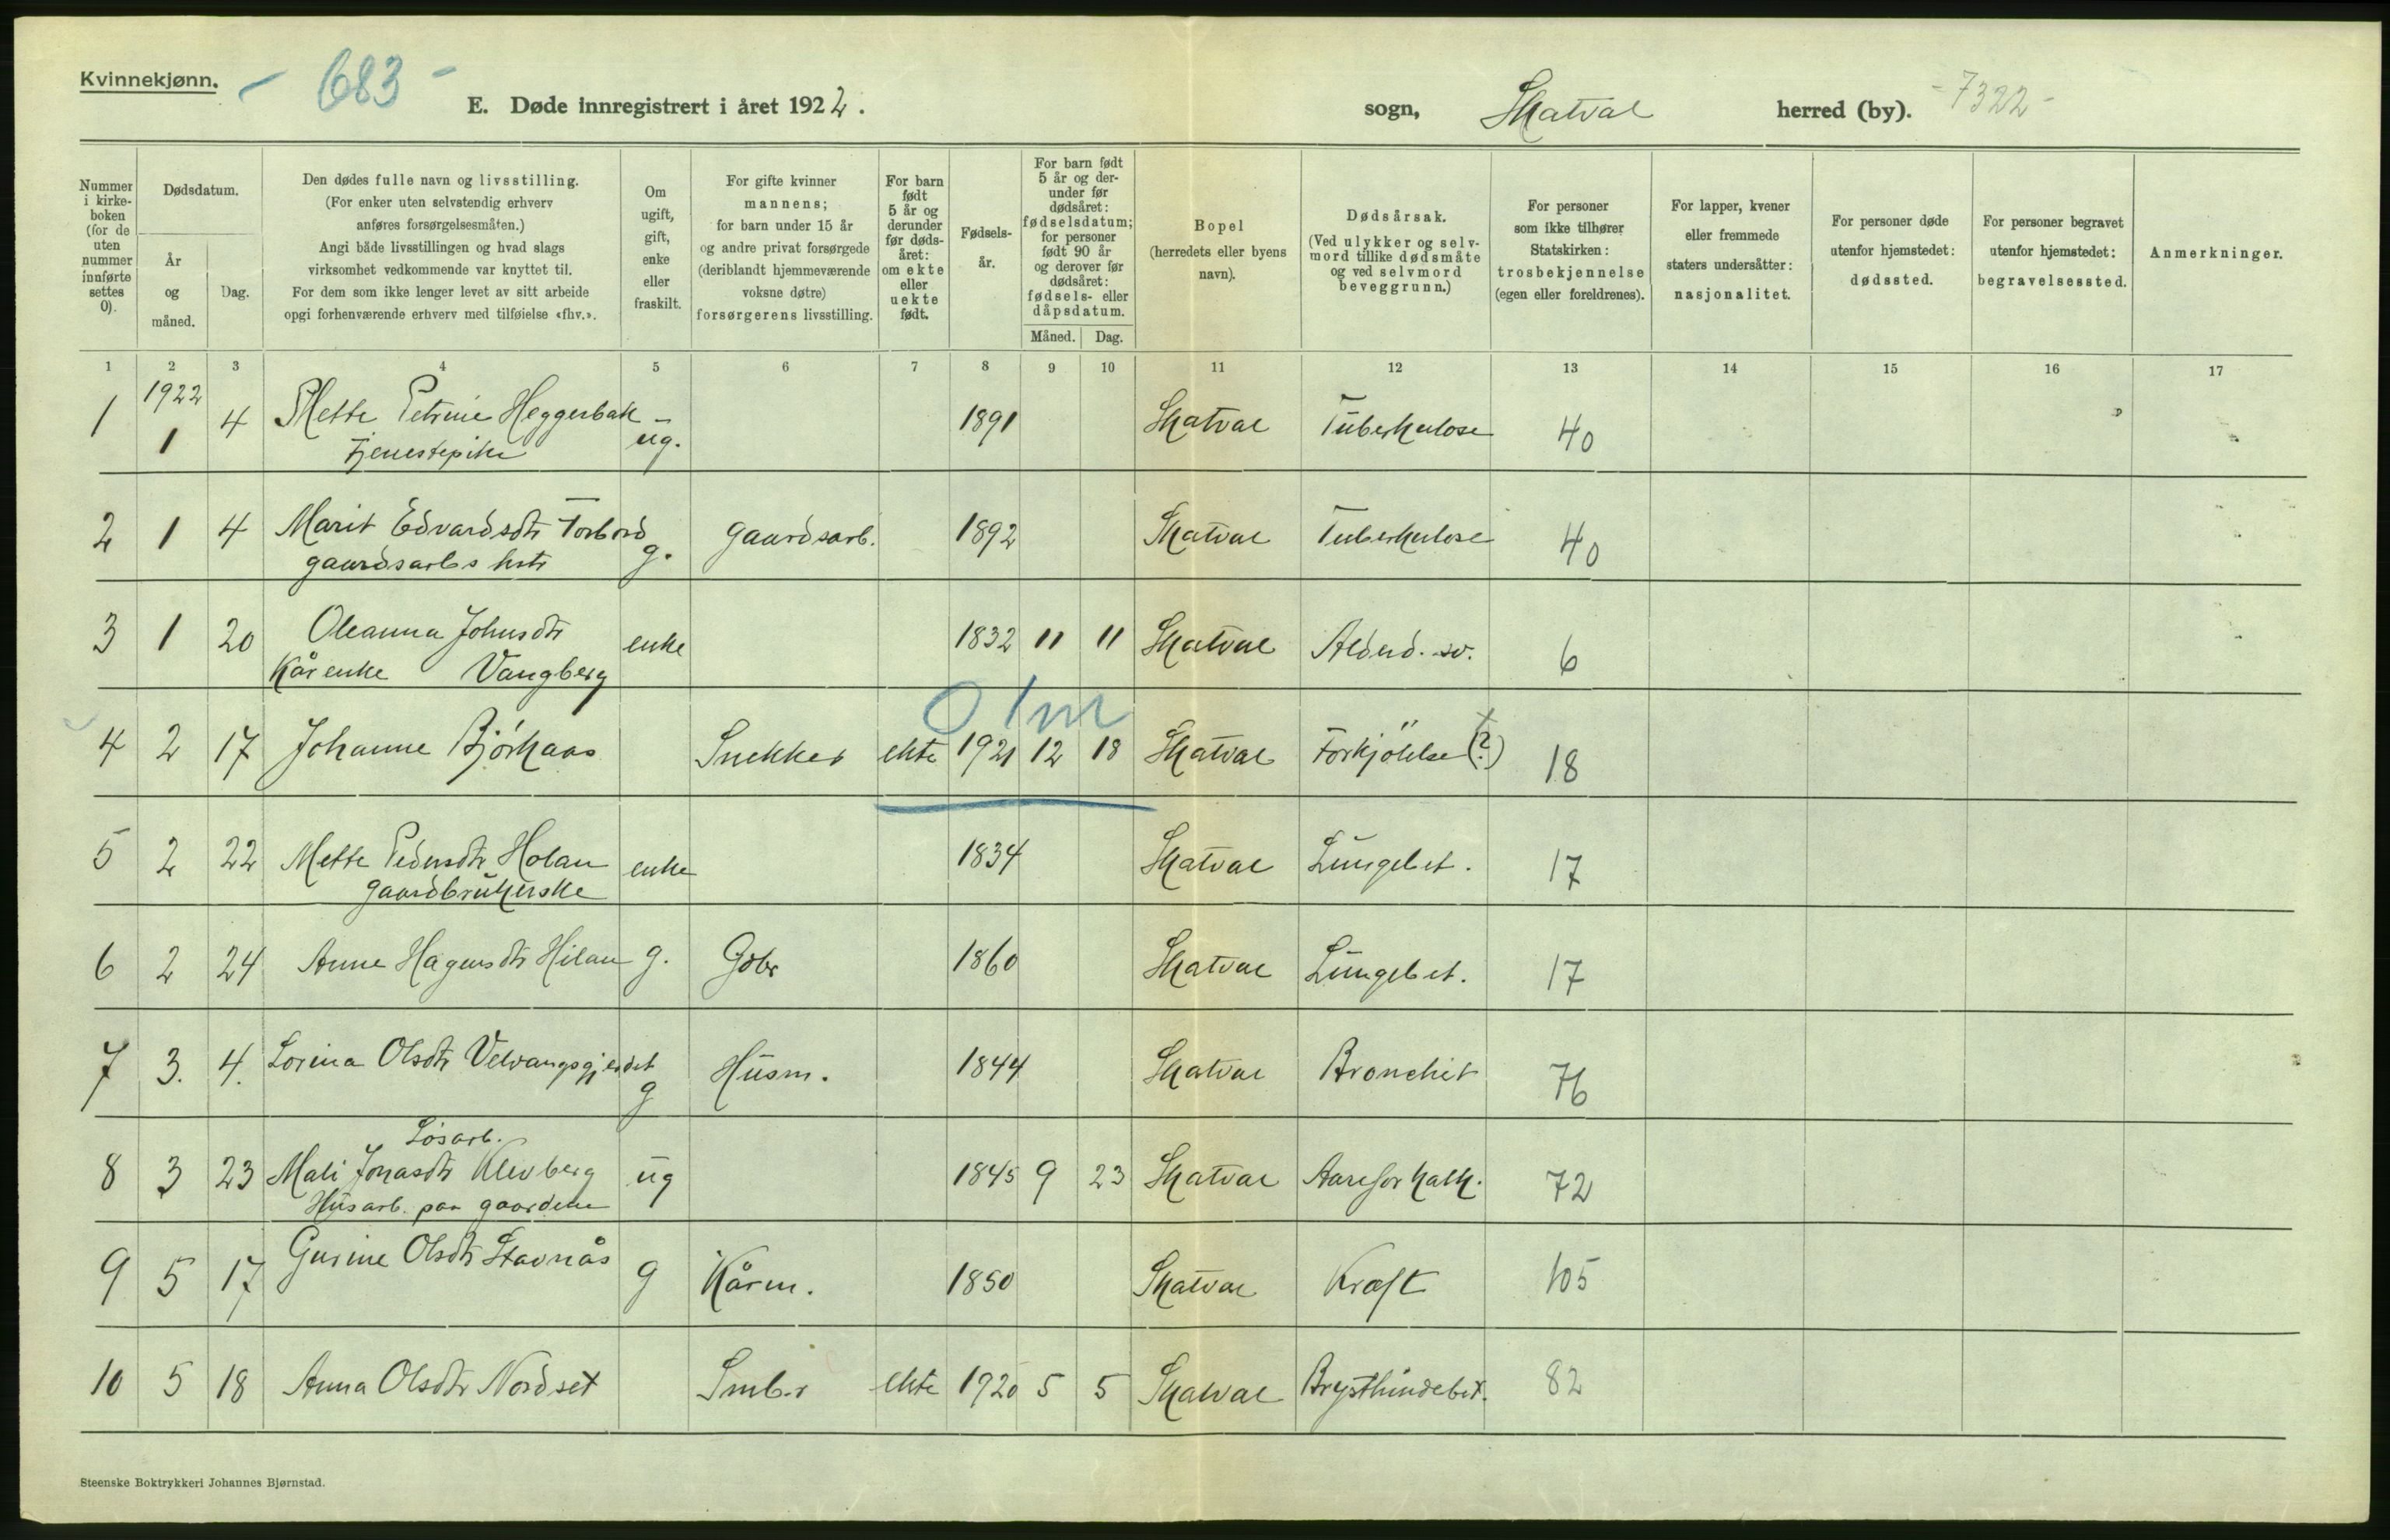 Kvinnekjønn.
- 683 -
E. Døde innregistrert i året 1922.
sogn, Skatval herred (by). -7322-
Nummer i kirkeboken (for de uten nummer innførte settes 0).
Dødsdatum.
År og måned.
Dag.
Den dødes fulle navn og livsstilling.
(For enker uten selvstendig erhverv
anføres forsørgelsesmåten.)
Angi både livsstillingen og hvad slags
virksomhet vedkommende var knyttet til.
For dem som ikke lenger levet av sitt arbeide
opgi forhenværende erhverv med tilføielse «fhv.».
Om ugift, gift, enke eller fraskilt.
For gifte kvinner
mannens;
for barn under 15 år
og andre privat forsørgede
(deriblandt hjemmeværende
voksne døtre)
forsørgerens livsstilling.
For barn født 5 år og derunder før dødsåret: om ekte eller uekte født.
Fødselsår.
For barn født 5 år og derunder før dødsåret: fødselsdatum; for personer født 90 år og derover før dødsåret: fødsels- eller dåpsdatum.
Måned. Dag.
Bopel
(herredets eller byens
navn).
Dødsårsak.
(Ved ulykker og selvmord tillike dødsmåte og ved selvmord beveggrunn.)
For personer
som ikke tilhører
Statskirken:
trosbekjennelse
(egen eller foreldrenes).
For lapper, kvener
eller fremmede
staters undersåtter:
nasjonalitet.
For personer døde
utenfor hjemstedet:
dødssted.
For personer begravet
utenfor hjemstedet:
begravelsessted.
Anmerkninger.
1 2 3 4 5 6 7 8 9 10 11 12 13 14 15 16 17
1922
1 1 4 Mette Petrine Heggerbak ug. 1891 Skatval Tuberkulose 40
Tjenestepike
2 1 4 Marit Edvardsdtr Torbord g. gaardsarb. 1892 Skatval Tuberkulose 40
gaardsarb.s hstr
3 1 20 Oleanna Johnsdtr enke 1832 11 11 Skatval Alderd. sv. 6
Kårenke Vangberg
0 1m
4 2 17 Johanne Bjørkaas Snekker ekte 1921 12 18 Skatval Forkjölelse (?) 18
5 2 22 Mette Pedersdtr Holan enke 1834 Skatval Lungebet. 17
gaardbrukerske
6 2 24 Anne Hagensdtr Hilan g. Gdbr 1860 Skatval Lungebet. 17
7 3. 4. Lorina Olsdtr Velvangsgjerdet g Husm. 1844 Skatval Bronchit 76
Løsarb.
8 3 23 Mali Jonasdtr Klevberg ug 1845 9 23 Skatval Aareforkalk. 72
Husarb. paa gaardene
9 5 17 Gurine Olsdtr Stavnås g Kårm. 1850 Skatval Kræft 105
10 5 18 Anna Olsdtr Nordset Smb.r ekte 1920 5 5 Skatval Brysthindebet. 82
Steenske Boktrykkeri Johannes Bjørnstad.